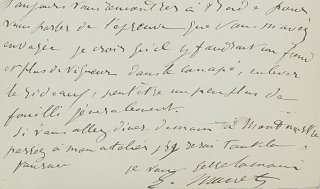 toujours vous rencontrer à Bade pour
vous parler de l'épreuve que vous m'avez
envoyée je crois qu'il y faudrait un fond
et plus de vigueur dans le canapé, enlever
le rideau, peut être un peu plus de
fouilli généralement.
Si vous allez diner demain à Montmartre
passez à mon atelier, j'y serai toute la
journée
je vous serre la main
E. Manet